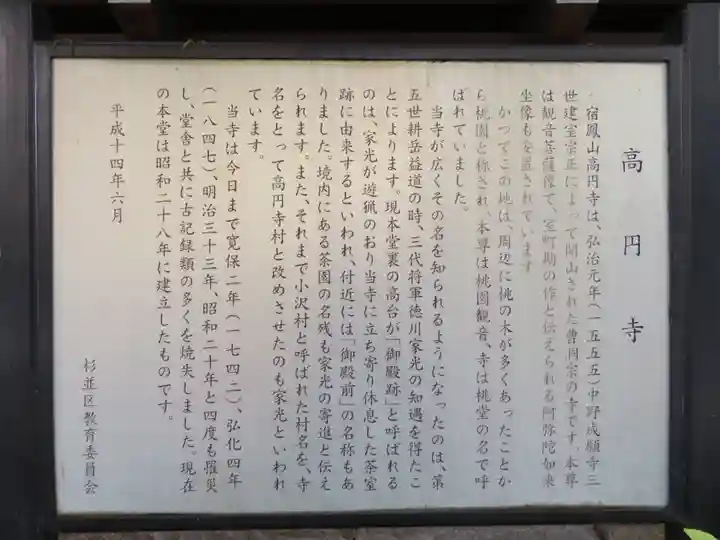 高円寺
宿鳳山高円寺は、弘治元年(一五五五)中野成願寺三
世建室宗正によって開山された曹洞宗の寺です。本尊
は観音菩薩像で、室町期の作と伝えられる阿弥陀如来
坐像もを置されています
かつてこの地は、周辺に桃の木が多くあったことか
ら桃園と称され、本尊は桃園観音、寺は桃堂の名で呼
ばれていました。
当寺が広くその名を知られるようになったのは、第
五世耕岳益道の時、三代将軍徳川家光の知遇を得たこ
とによります。現本堂裏の高台が「御殿跡」と呼ばれる
のは、家光が遊猟のおり当寺に立ち寄り休息した茶室
跡に由来するといわれ、付近には「御殿前」の名称もあ
りました。境内にある茶園の名残も家光の寄進と伝え
られます。また、それまで小沢村と呼ばれた村名を、寺
名をとって高円寺村と改めさせたのも家光といわれ
ています。
当寺は今日まで寛保二年(一七四二)、弘化四年
(一八四七)、明治三十三年、昭和二十年と四度も罹災
し、堂舎と共に古記録類の多くを焼失しました。現在
の本堂は昭和二十八年に建立したものです。
平成十四年六月
杉並区教育委員会